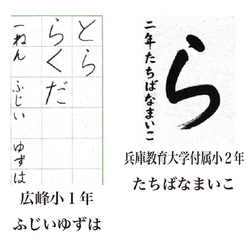 とら
らくだ
一ねん ふじい ゆずは
広峰小1年
ふじいゆずは
ら
二年たちばなまいこ
兵庫教育大学付属小2年
たちばなまいこ